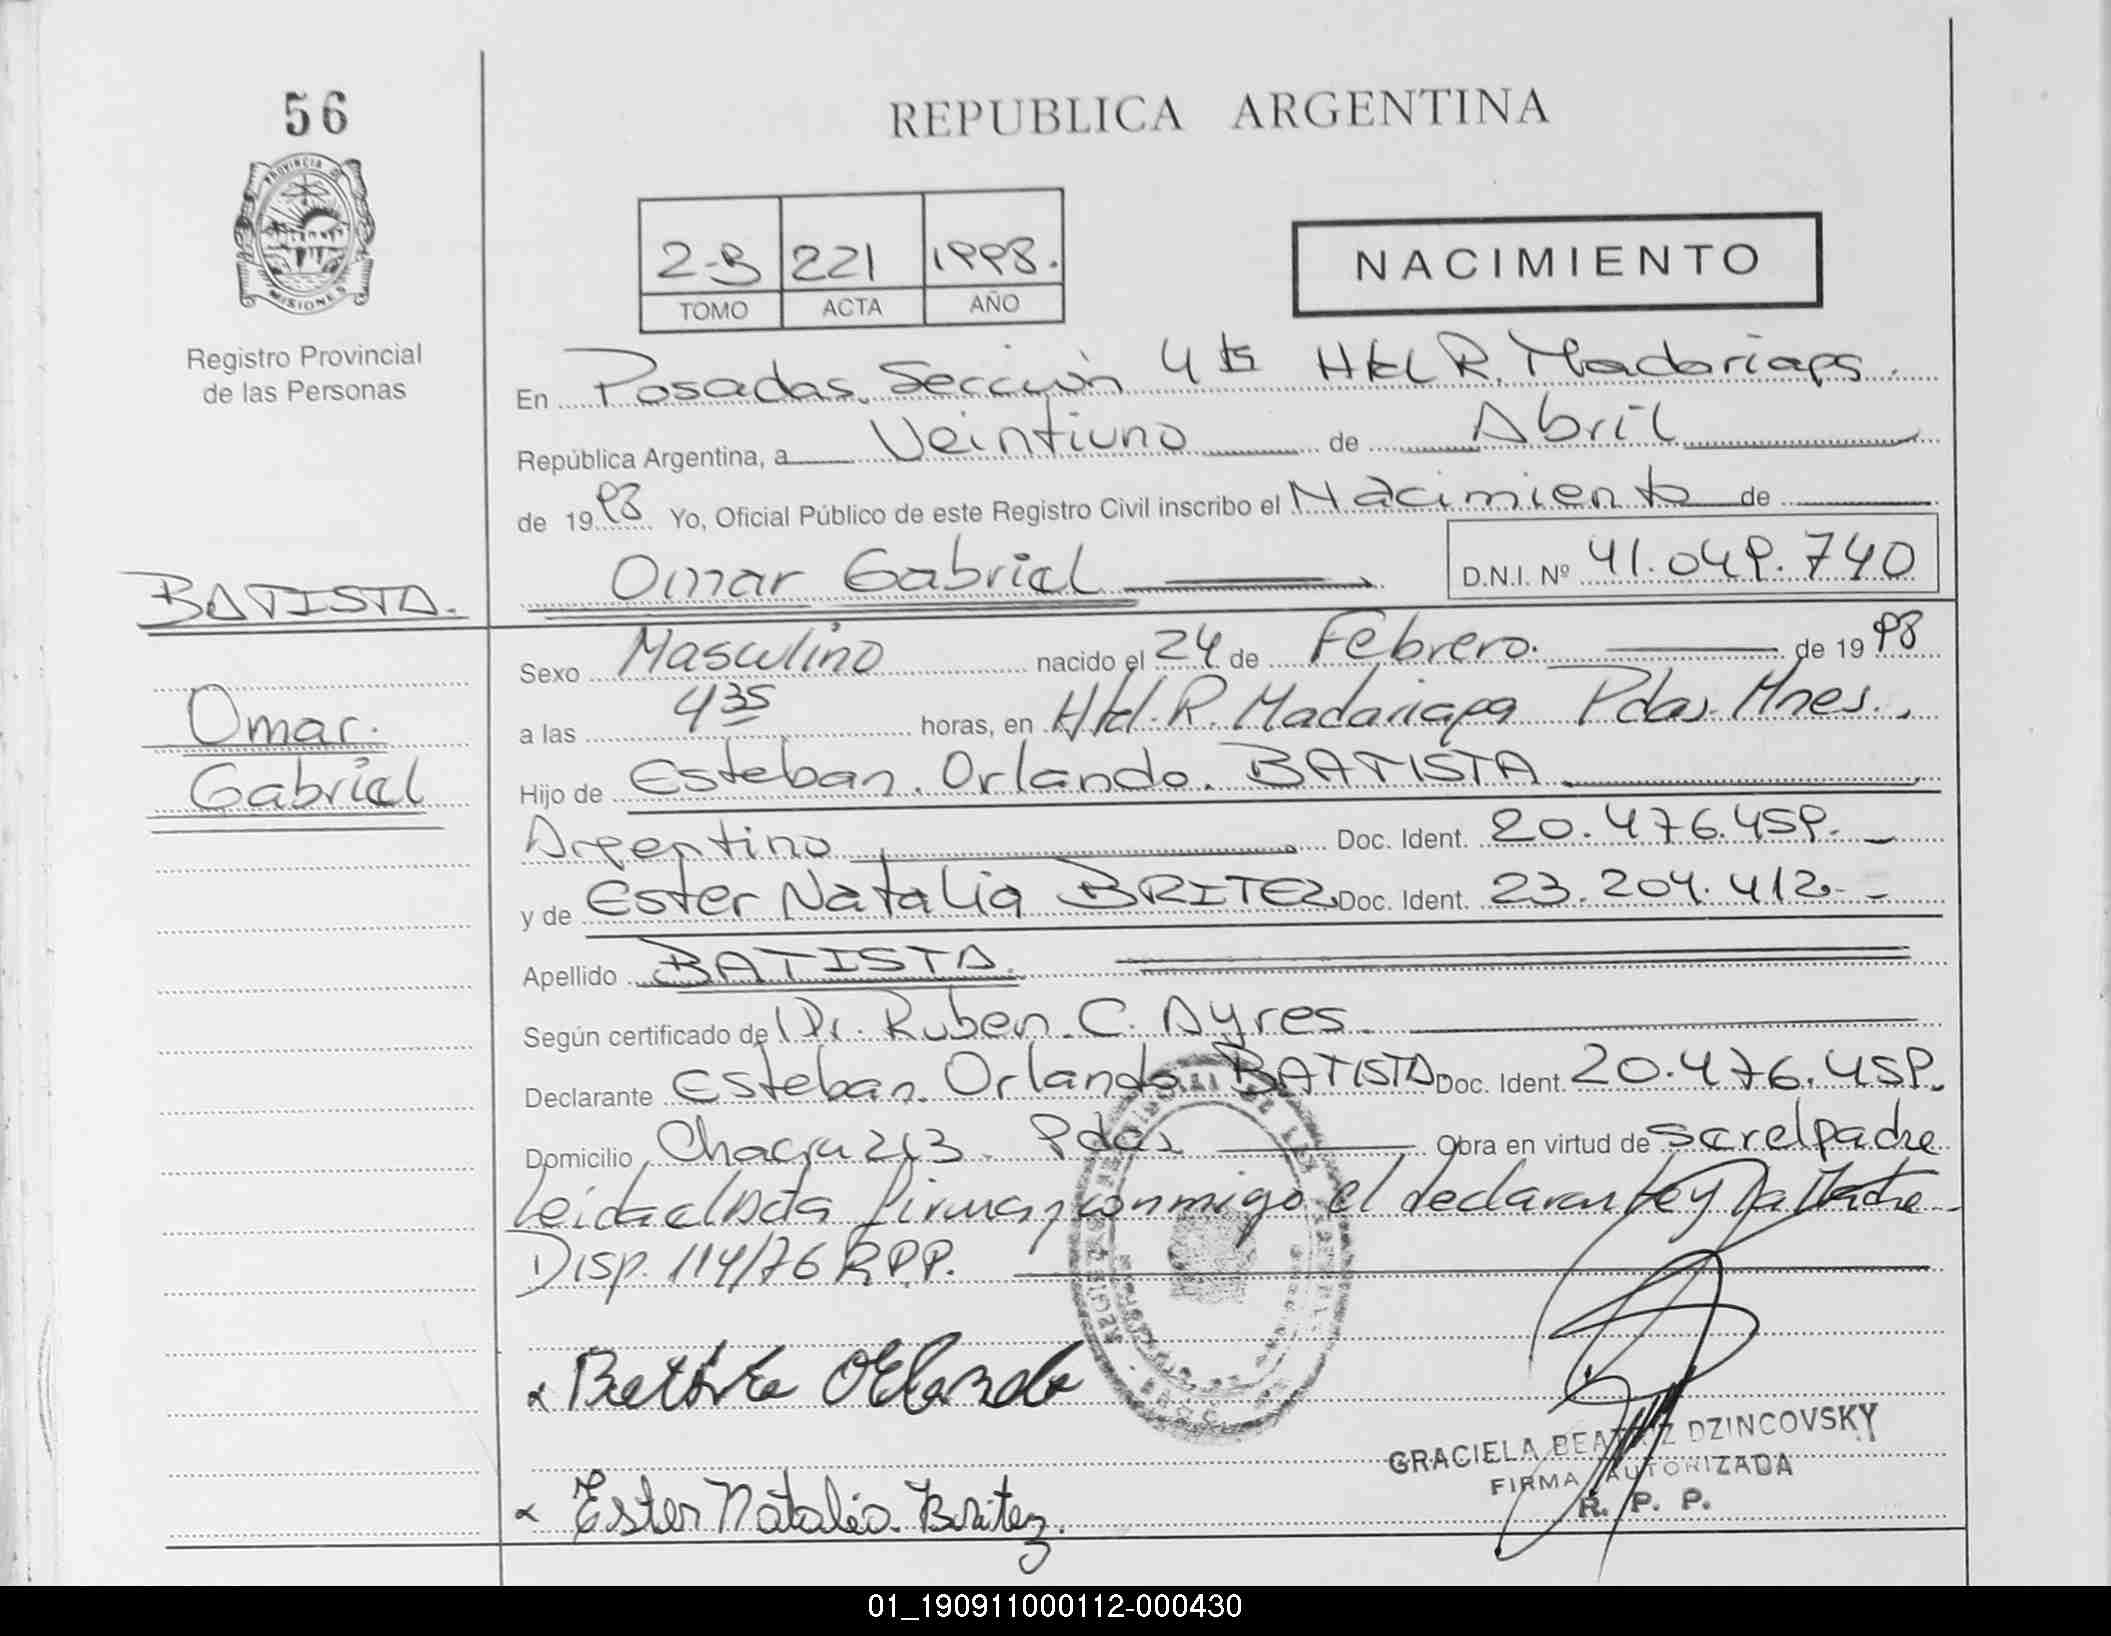 56
REPUBLICA ARGENTINA
PROVINCIA DE
MISIONES
Registro Provincial
de las Personas
2-B 221 1998.
TOMO ACTA AÑO
NACIMIENTO
En Posadas. Sección 4ta Htal R. Madariaga.
República Argentina, a Veintiuno de Abril
de 1998 Yo, Oficial Público de este Registro Civil inscribo el Nacimiento de
Omar Gabriel D.N.I. Nº 41.049.740
BATISTA.
Omar.
Gabriel
Sexo Masculino nacido el 24 de Febrero. de 1998
a las 4 35 horas, en Htal. R. Madariaga Pdas. Mnes.
Hijo de Esteban. Orlando. BATISTA
Argentino Doc. Ident. 20.476.459.
y de Ester Natalia BRITEZ Doc. Ident. 23.204.412.
Apellido BATISTA.
Según certificado de Dr. Ruben. C. Ayres
Declarante Esteban. Orlando BATISTA. Doc. Ident. 20.476.459.
Domicilio Chacra 213. Pdas Obra en virtud de ser el padre
Leida el Acta firman conmigo el declarante y la Madre
Disp. 114/76 R.P.P.
Batista Orlando
Ester Natalia. Britez.
GRACIELA BEATRIZ DZINCOVSKY
FIRMA AUTORIZADA
R. P. P.
01_190911000112-000430